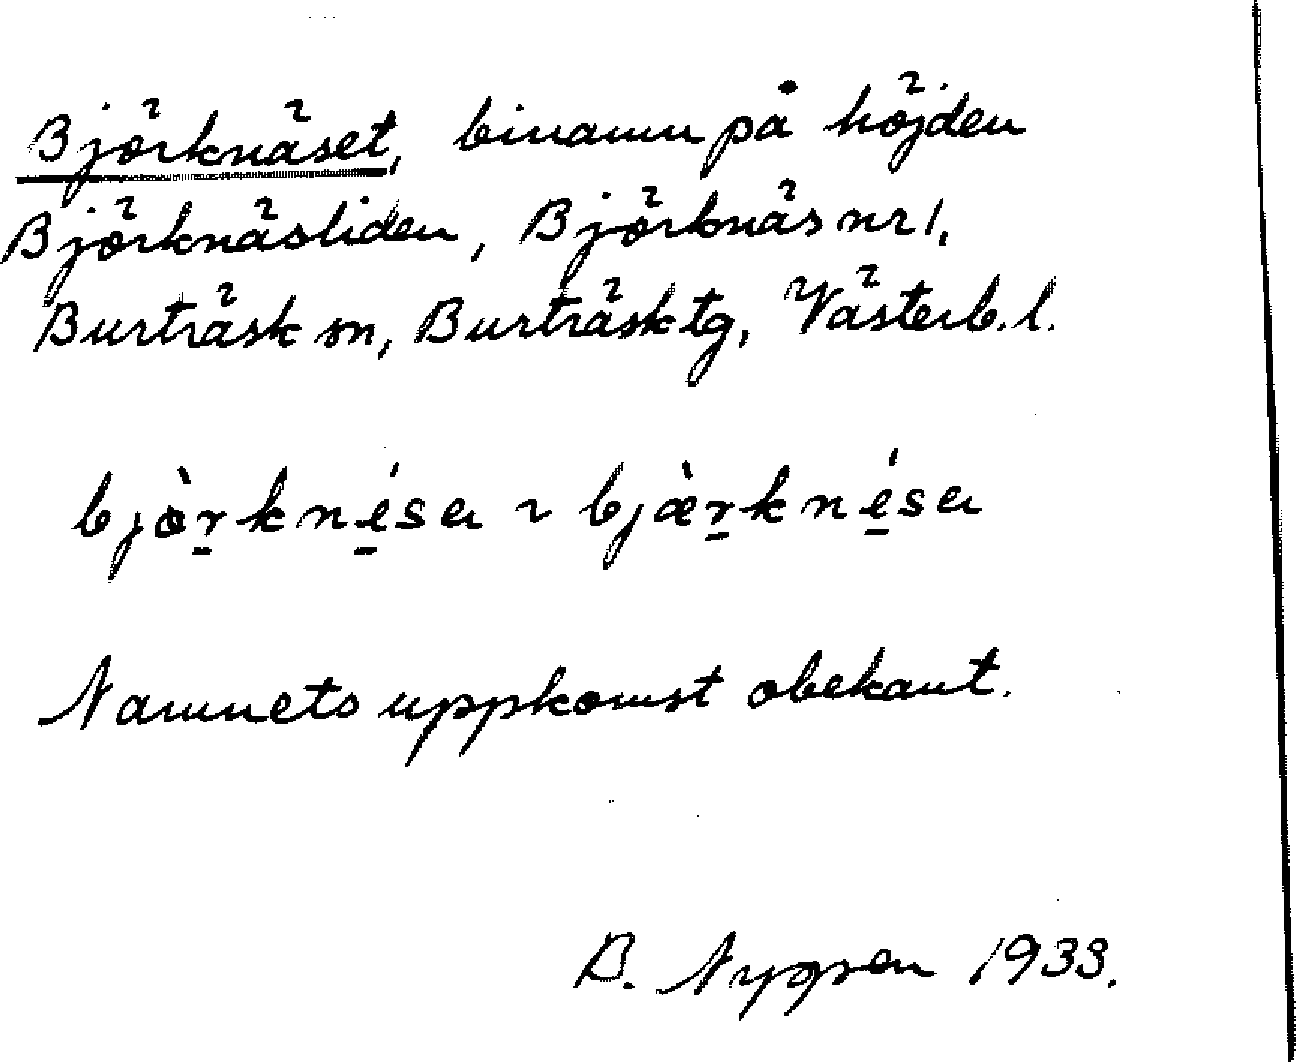 Björknäset, binamn på höjden
Björknäsliden, Björknäs nr 1,
Burträsk sn, Burträsk tg, Västerb. l.
bjòr̠kné̠sɐ ~ bjæ̀r̠kné̠sɐ
Namnets uppkomst obekant.
B. Nygren 1933.